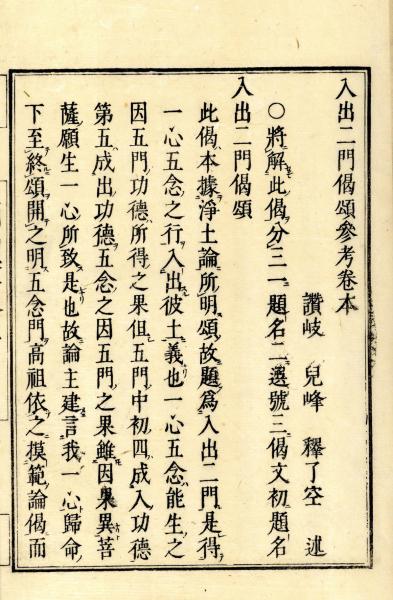 入出二門偈頌參考卷本
讃岐 兒峰 釋了空 述
○將解此偈分三一題名二選號三偈文初題名
入出二門偈頌
此偈本據淨土論所明頌故題爲入出二門是得
一心五念之行入出彼土義也一心五念能生之
因五門功德所得之果但五門中初四成入功德
第五成出功德五念之因五門之果雖因果異菩
薩願生一心所致是也故論主建言我一心歸命
下至終頌開之明五念門高祖依之摸範論偈而